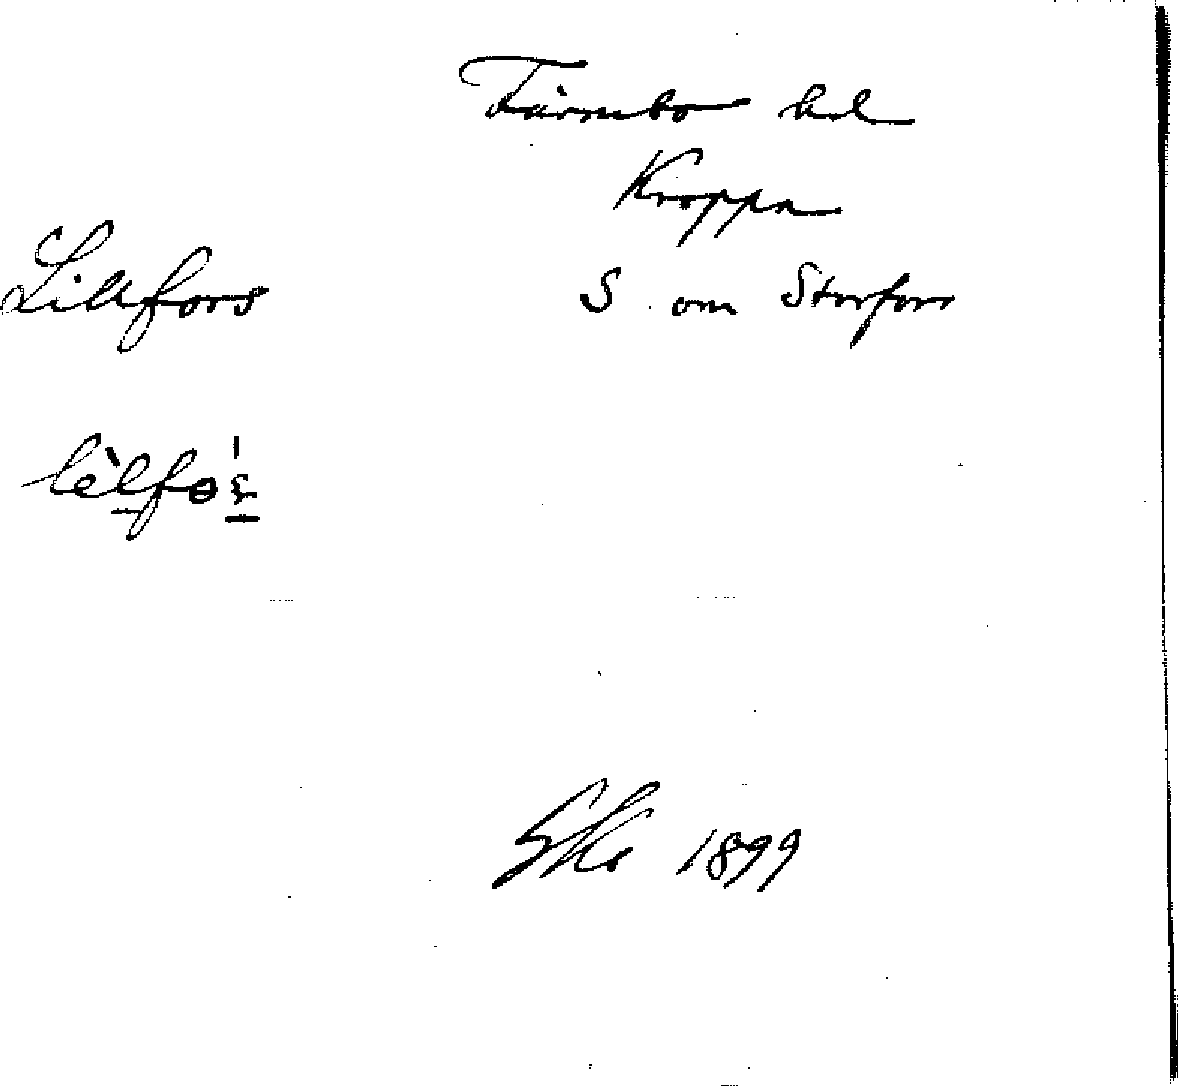 Färnebo hd
Kroppa
Lillfors S om Storfors
1899